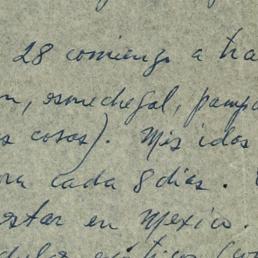 28 comienzo a tra
n, esmechegal, pampa
s cosas). Mis idas
ra cada 8 dias.
estar en Mexico.